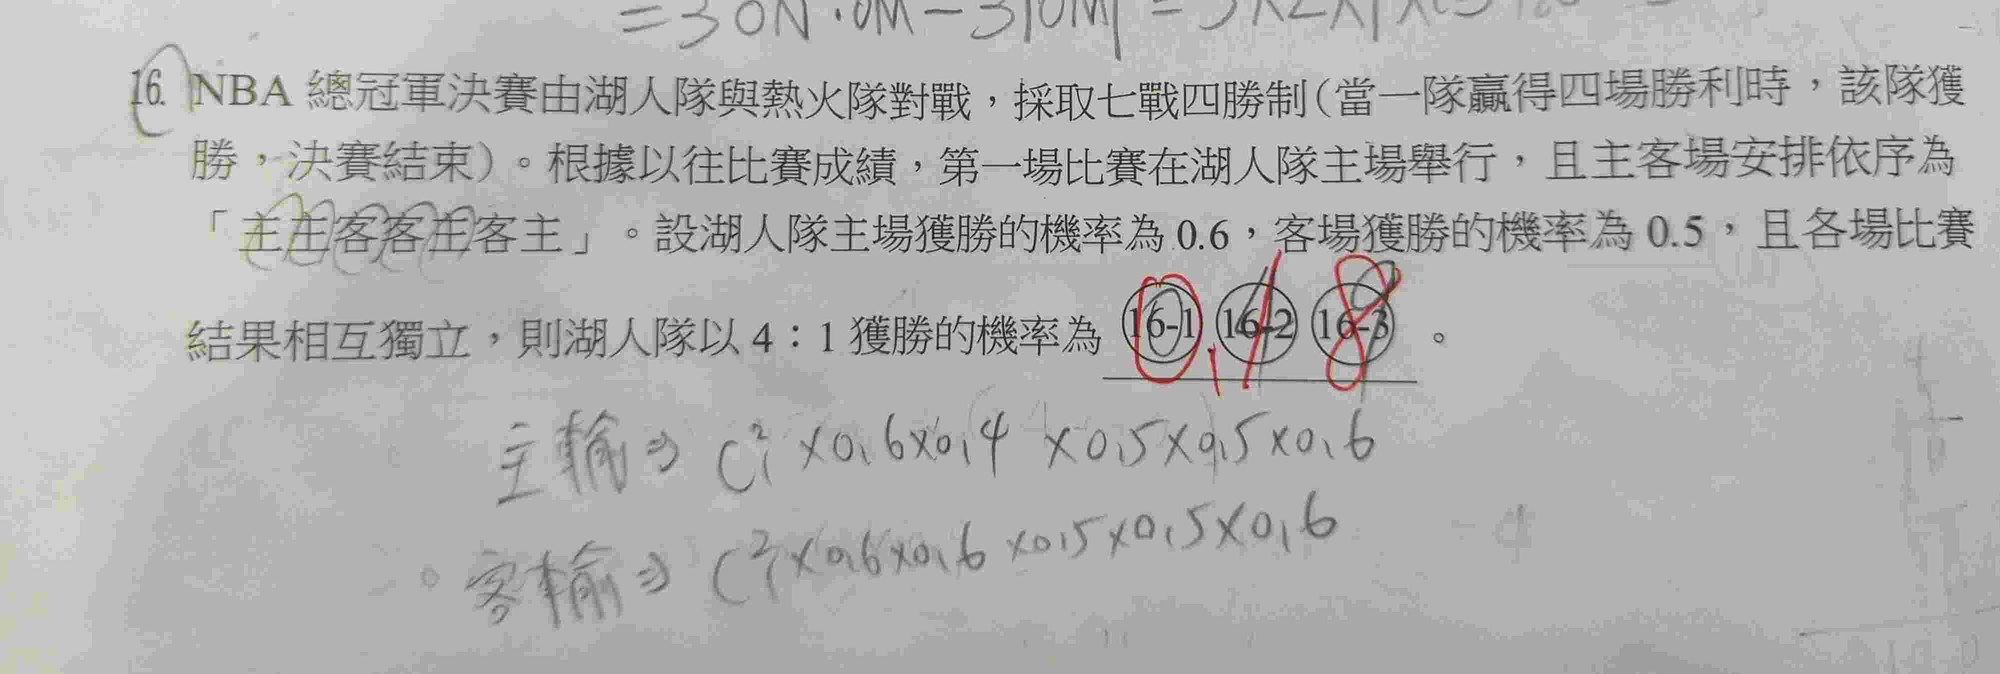 =30N·0M-310M
16. NBA 總冠軍決賽由湖人隊與熱火隊對戰,採取七戰四勝制(當一隊贏得四場勝利時,該隊獲
勝,決賽結束)。根據以往比賽成績,第一場比賽在湖人隊主場舉行,且主客場安排依序為
「主主客客主客主」。設湖人隊主場獲勝的機率為 0.6,客場獲勝的機率為 0.5,且各場比賽
結果相互獨立,則湖人隊以 4:1 獲勝的機率為 16-1 16-2 16-3 。
0.18
主輸⇒ C²₁ ×0.6×0.4 ×0.5×0.5×0.6
客輸⇒ C²₁×0.6×0.6×0.5×0.5×0.6